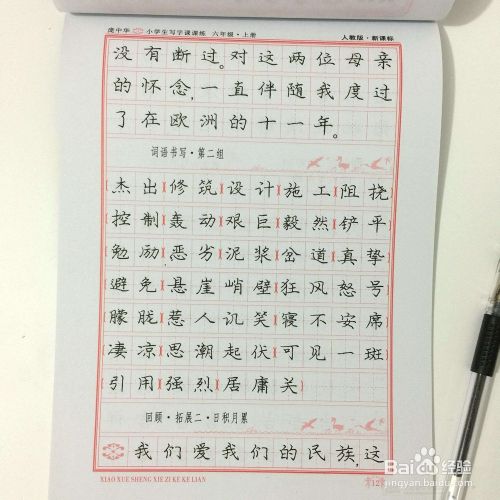 庞中华 小学生写字课课练 六年级·上册 人教版·新课标
没有断过。对这两位母亲
的怀念,一直伴随我度过
了在欧洲的十一年。
词语书写·第二组
杰出 修筑 设计 施工 阻挠
控制 轰动 艰巨 毅然 铲平
勉励 恶劣 泥浆 岔道 真挚
避免 悬崖峭壁 狂风怒号
朦胧 惹人讥笑 寝不安席
凄凉 思潮起伏 可见一斑
引用 强烈 居庸关
回顾·拓展二·日积月累
我们爱我们的民族,这
XIAO XUE SHENG XIE ZI KE KE LIAN
12
Baidu 经验
jingyan.baidu.com